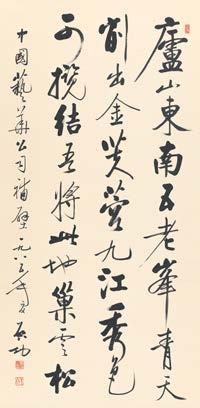 廬山東南五老峯青天
削出金芙蓉九江秀色
可攬結吾將此地巢雲松
中國藝華公司補壁 一九八三年夏 启功